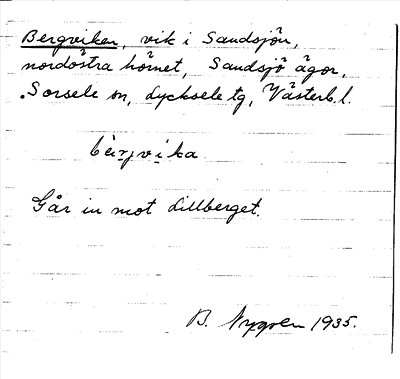 Bergviken, vik i Sandsjön,
nordöstra hörnet, Sandsjö ägor,
Sorsele sn, Lycksele tg, Västerb. l.
bärjvika
Går in mot Lillberget.
B. Nygren 1935.